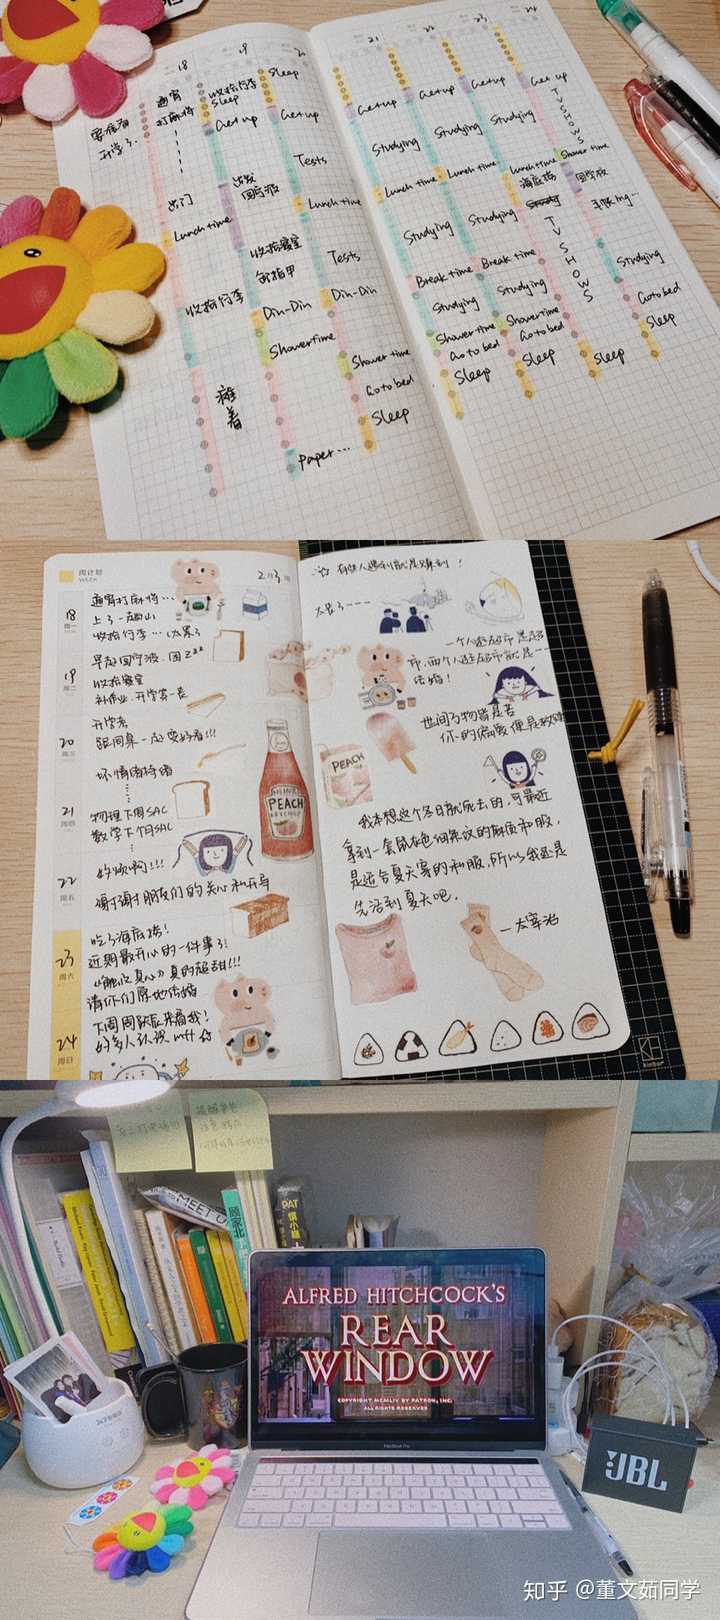 18
19
20
21
22
23
24
通宵
打麻将
收拾行李
Sleep
Sleep
Get up
Get up
Get up
Get up
Get up
Get up
TV SHOWS
Tests
Studying
Studying
Studying
Shower time
出门
出发
回宁波
Lunch time
Lunch time
Lunch time
Lunch time
Lunch time
海底捞
回学校
收拾寝室
剪指甲
Tests
Studying
Studying
TV SHOWS
Studying
收拾行李
Din-Din
Din-Din
Break time
Break time
Studying
Studying
Go to bed
Sleep
Shower time
Shower time
Shower time
Shower time
Go to bed
Go to bed
Go to bed
瘫着
Sleep
Sleep
Sleep
Sleep
Paper...
周计划
WEEK
2月3周
18
周一
通宵打麻将...
上了一趟山
收拾行李...(太累了
19
周二
早起回宁波.困zzz
收拾寝室
补作业.开学第一天
20
周三
开学考
跟同桌一起变好看!!!
坏情绪持续
21
周四
物理下周SAC
数学下个月SAC
22
周五
好烦啊!!!
谢谢朋友们的关心和开导
23
周六
吃了海底捞!
近期最开心的一件事了!
《触及真心》真的超甜!!!
请你们原地结婚
24
周日
下周周猷庭来看我!
PEACH
有些人遇到就是赚到!
一个人逛超市是超
市,两个人逛超市就是一
结婚!
世间万物皆是苦
你的偏爱便是救赎
PEACH
我本想这个冬日就死去的,可最近
拿到一套鼠灰色细条纹的麻质和服,
是适合夏天穿的和服,所以我还是
先活到夏天吧.
—太宰治
kinbor
MEET
顾家北
PAT
ALFRED HITCHCOCK'S
REAR
WINDOW
COPYRIGHT MCMLIV BY PATRON, INC.
ALL RIGHTS RESERVED
MacBook Pro
JBL
知乎 @董文茹同学